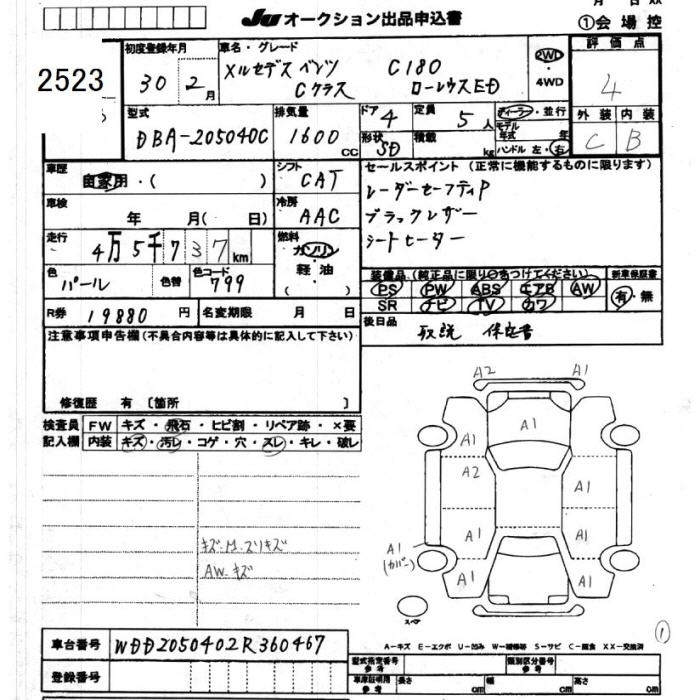 JU オークション出品申込書
月 日 XX
①会場控
2523
初度登録年月
30年2月
車名・グレード
メルセデスベンツ C180
Cクラス ローレウスED
2WD・4WD
評価点
4
外装 内装
C B
型式
DBA-205040C
排気量
1600cc
ドア
4
形状
SD
定員
5人
積載
kg
ディーラー・並行
モデル年式 年
ハンドル 左・右
車歴
自家用・( )
シフト
CAT
セールスポイント (正常に機能するものに限ります)
レーダーセーフティP
ブラックレザー
シートヒーター
車検
年 月( 日)
冷房
AAC
走行
4万5千737km
燃料
ガソリン
軽油
( )
色
パール
色替
色コード
799
装備品 (純正品に限り○をつけてください)
PS PW ABS エアB AW
SR ナビ TV カワ
新車保証書
有・無
R券 19880円
名変期限 月 日
後日品
取説 保定書
注意事項申告欄(不具合内容等は具体的に記入して下さい)
修復歴 有 〔箇所 〕
検査員記入欄
FW キズ・飛石・ヒビ割・リペア跡・×要
内装 キズ・汚レ・コゲ・穴・スレ・キレ・破レ
AW.キズ
A2 A1
A1
A1 A1
A2 A1
A1 A1
A1
(カバー)
A1 A1
スペア
①
A-キズ E-エクボ U-凹み W-補修跡 S-サビ C-腐食 XX-交換済
車台番号 WDD2050402R360467
登録番号
型式指定番号
参考
類別区分番号
参考
車庫証明用
参考
長さ cm 幅 cm 高さ cm